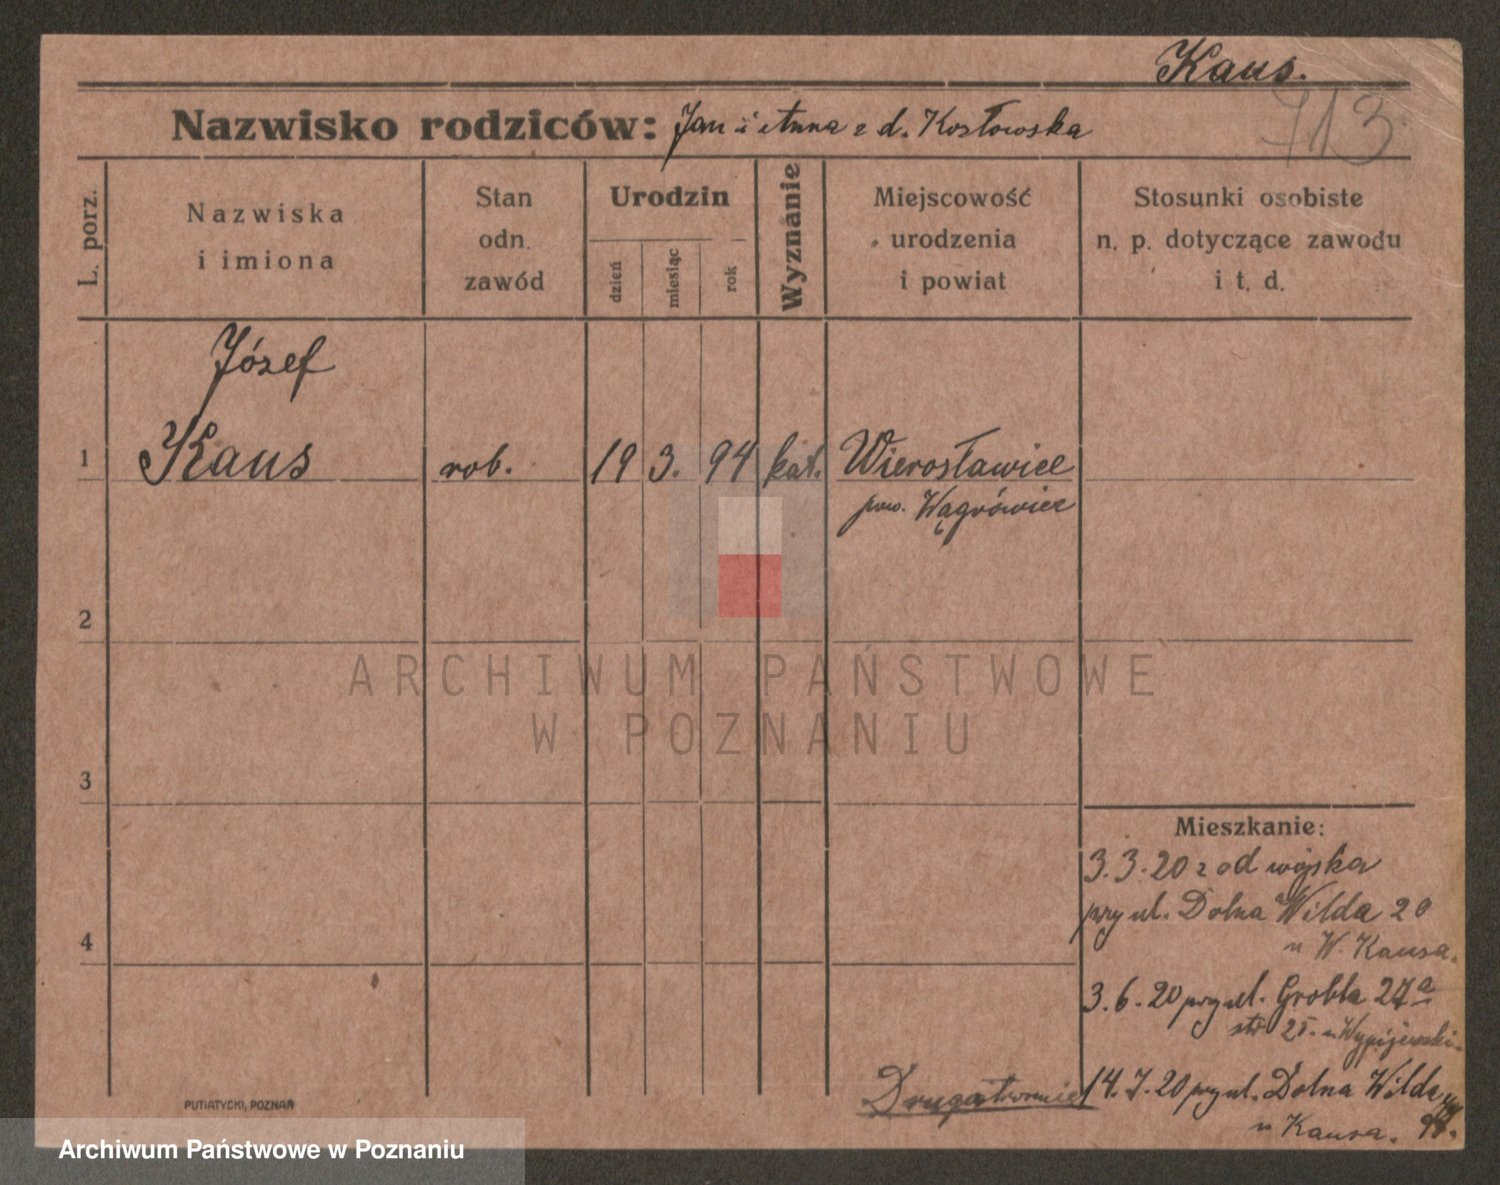 Kaus.
713.
Nazwisko rodziców: Jan i Anna z d. Kosłowska
L. porz.
Nazwiska
i imiona
Stan
odn.
zawód
Urodzin
dzień
miesiąc
rok
Wyznanie
Miejscowość
urodzenia
i powiat
Stosunki osobiste
n. p. dotyczące zawodu
i t. d.
Józef
1 Kaus rob. 19 3. 94 kat. Wierosławice
pow. Wągrówiec
2
3
4
ARCHIWUM PAŃSTWOWE
W POZNANIU
Mieszkanie:
3.3.20 z od wojska
przy ul. Dolna Wilda 20
u W. Kausa.
3.6.20 przy ul. Grobla 27a
u Wypijewski.
Drugastronie
14.7.20 przy ul. Dolna Wilda
u Kausa.
PUTIATYCKI, POZNAŃ
Archiwum Państwowe w Poznaniu